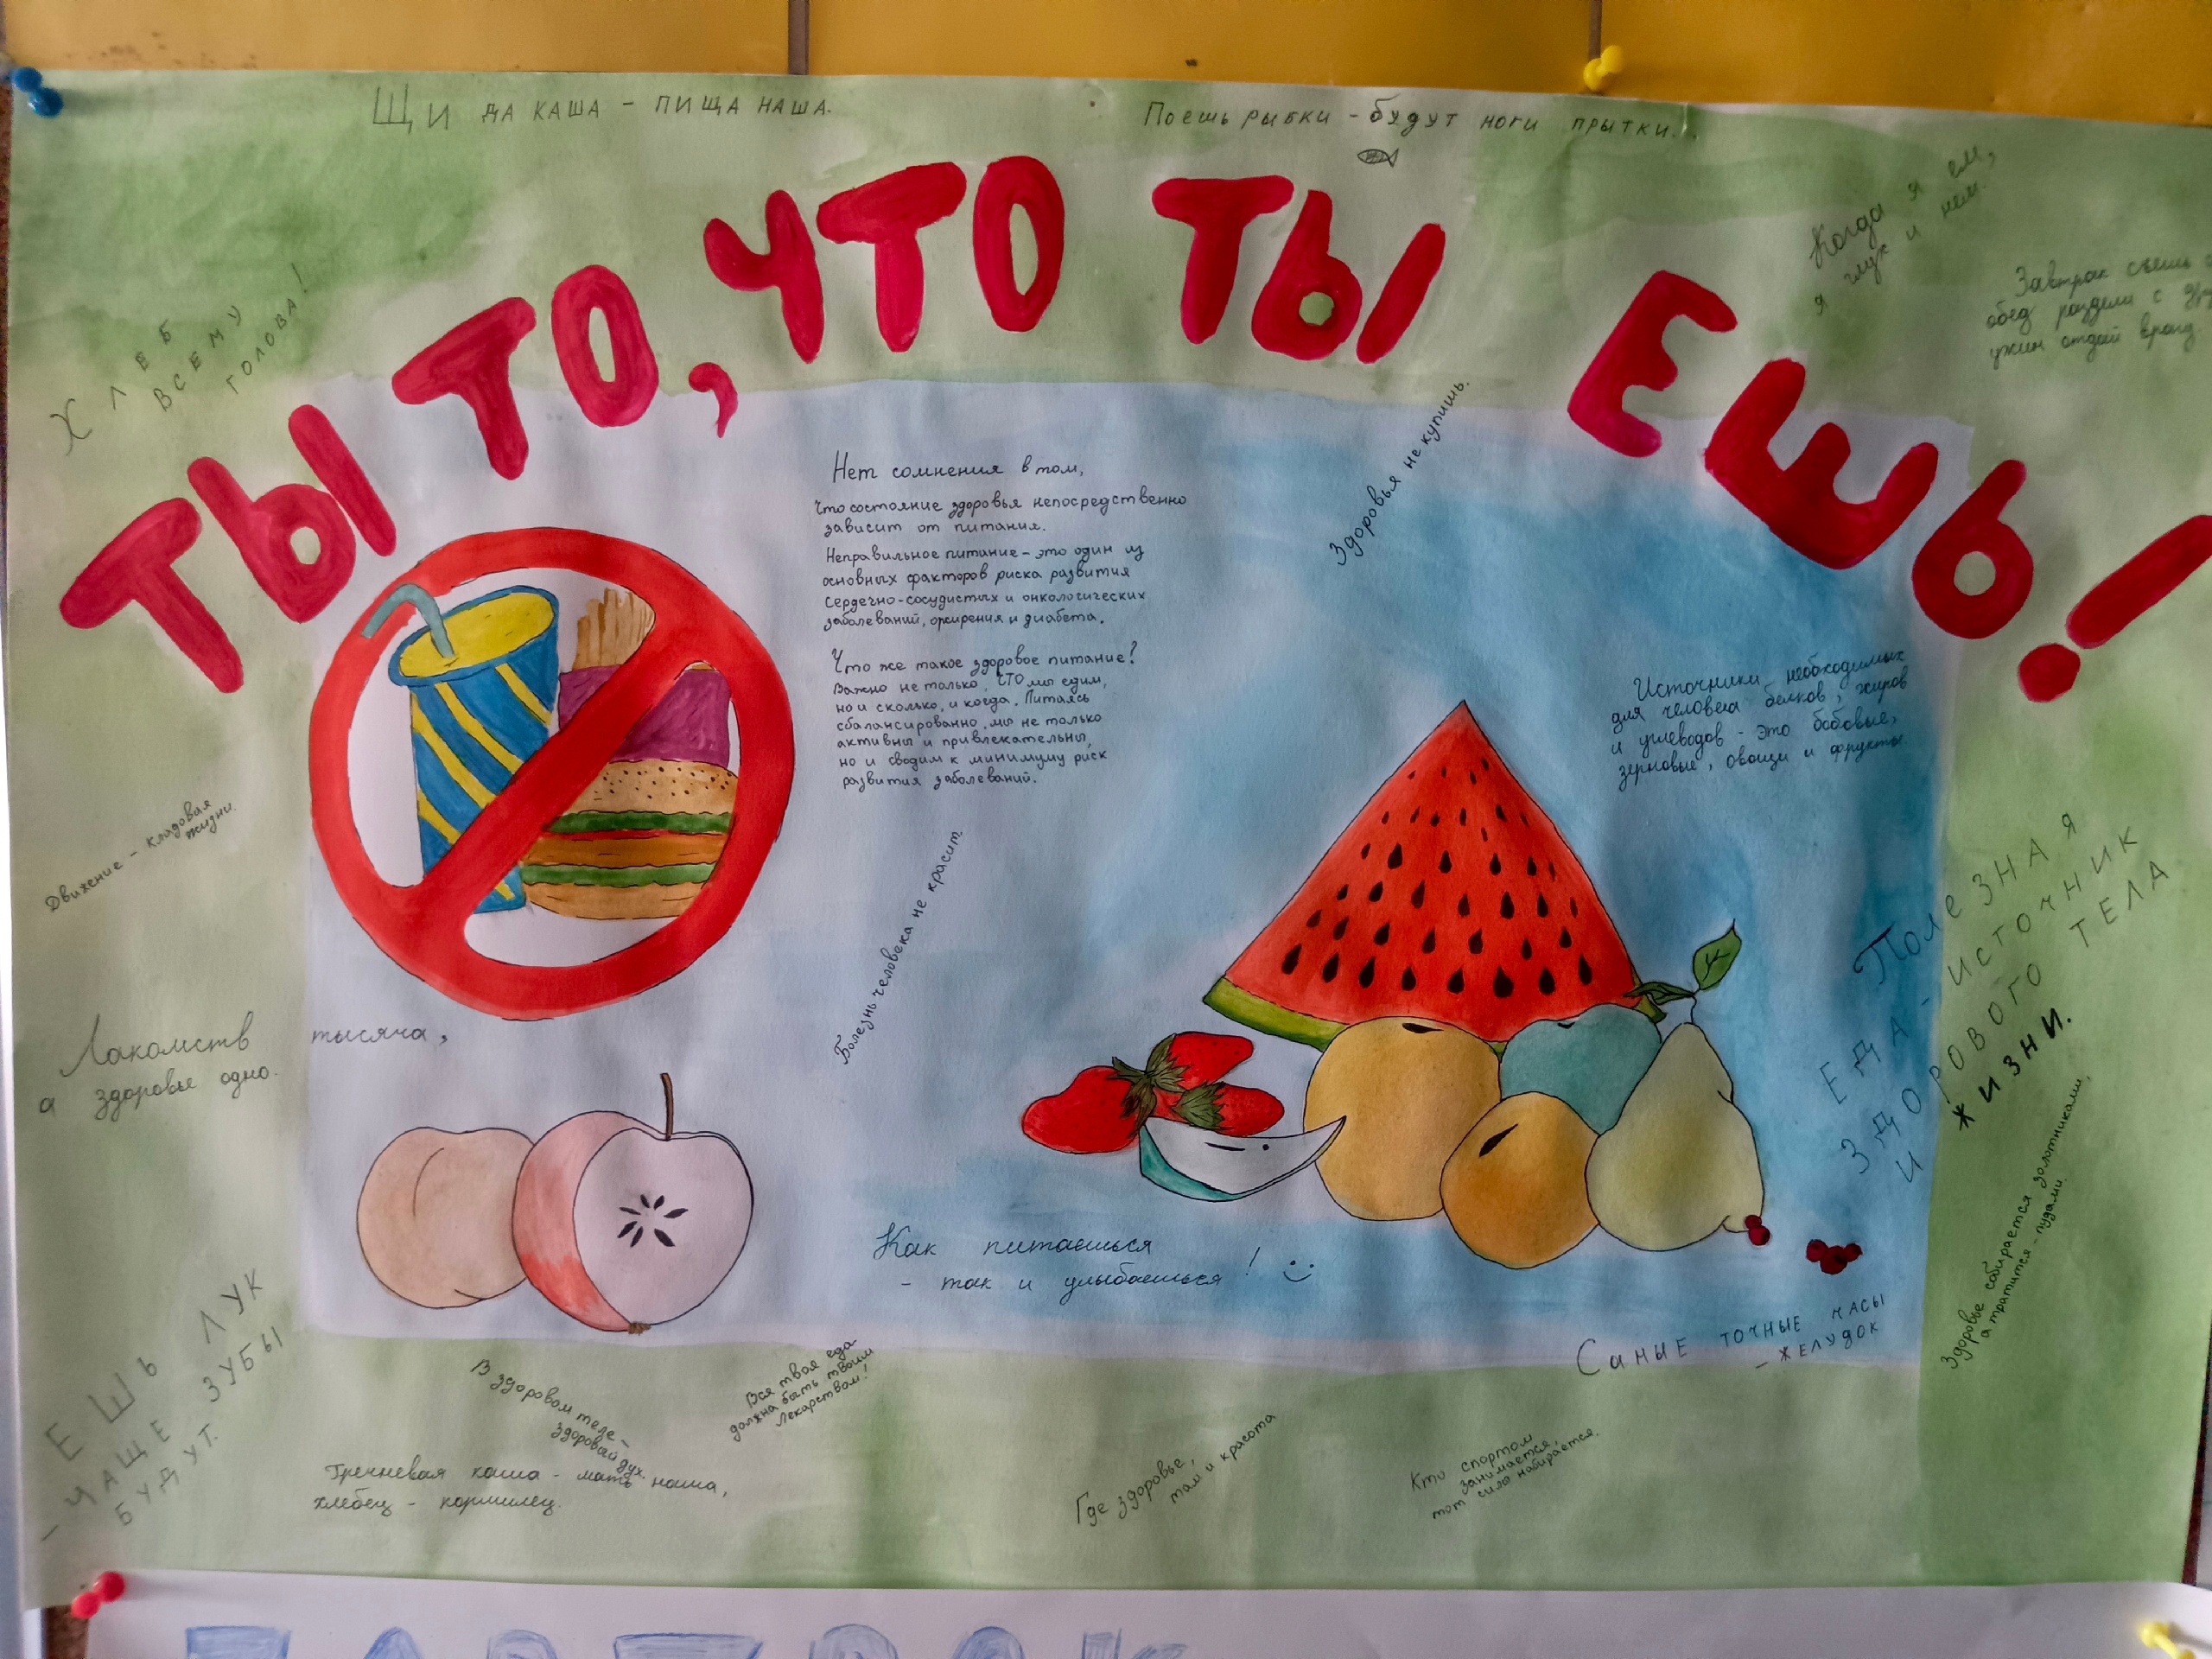 Щи да каша - пища наша.
Поешь рыбки - будут ноги прытки...
ТЫ ТО, ЧТО ТЫ ЕШЬ!
Хлеб
всему
голова!
Когда я ем,
я глух и нем.
Завтрак съешь
обед раздели с
ужин отдай врагу
Нет сомнения в том,
что состояние здоровья непосредственно
зависит от питания.
Неправильное питание - это один из
основных факторов риска развития
сердечно-сосудистых и онкологических
заболеваний, ожирения и диабета.
Что же такое здоровое питание?
Важно не только, что мы едим,
но и сколько, и когда. Питаясь
сбалансированно, мы не только
активны и привлекательны,
но и сводим к минимуму риск
развития заболеваний.
Здоровья не купишь.
Источники необходимых
для человека белков, жиров
и углеводов - это бобовые,
зерновые, овощи и фрукты.
Движение - кладовая
жизни.
Болезнь человека не красит.
Полезная
еда - источник
здорового тела
и жизни.
Лакомств тысяча,
а здоровье одно.
Здоровье собирается золотниками,
а тратится - пудами.
Как питаешься
- так и улыбаешься!
Самые точные часы
- желудок
Ешь лук
- чаще зубы
будут.
В здоровом теле -
здоровый дух.
Вся твоя еда
должна быть твоим
лекарством!
Гречневая каша - мать наша,
хлебец - кормилец.
Где здоровье,
там и красота
Кто спортом
занимается,
тот силы набирается.